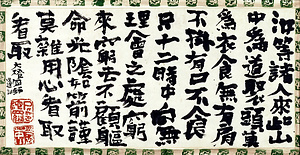 汝等諸人来此山
中為道聚頭莫
為衣食無有肩
不掛有口不食
只十二時中向無
理會之處窮
来窮去不顧軀
命光陰如箭謹
莫雜用心看取
看取